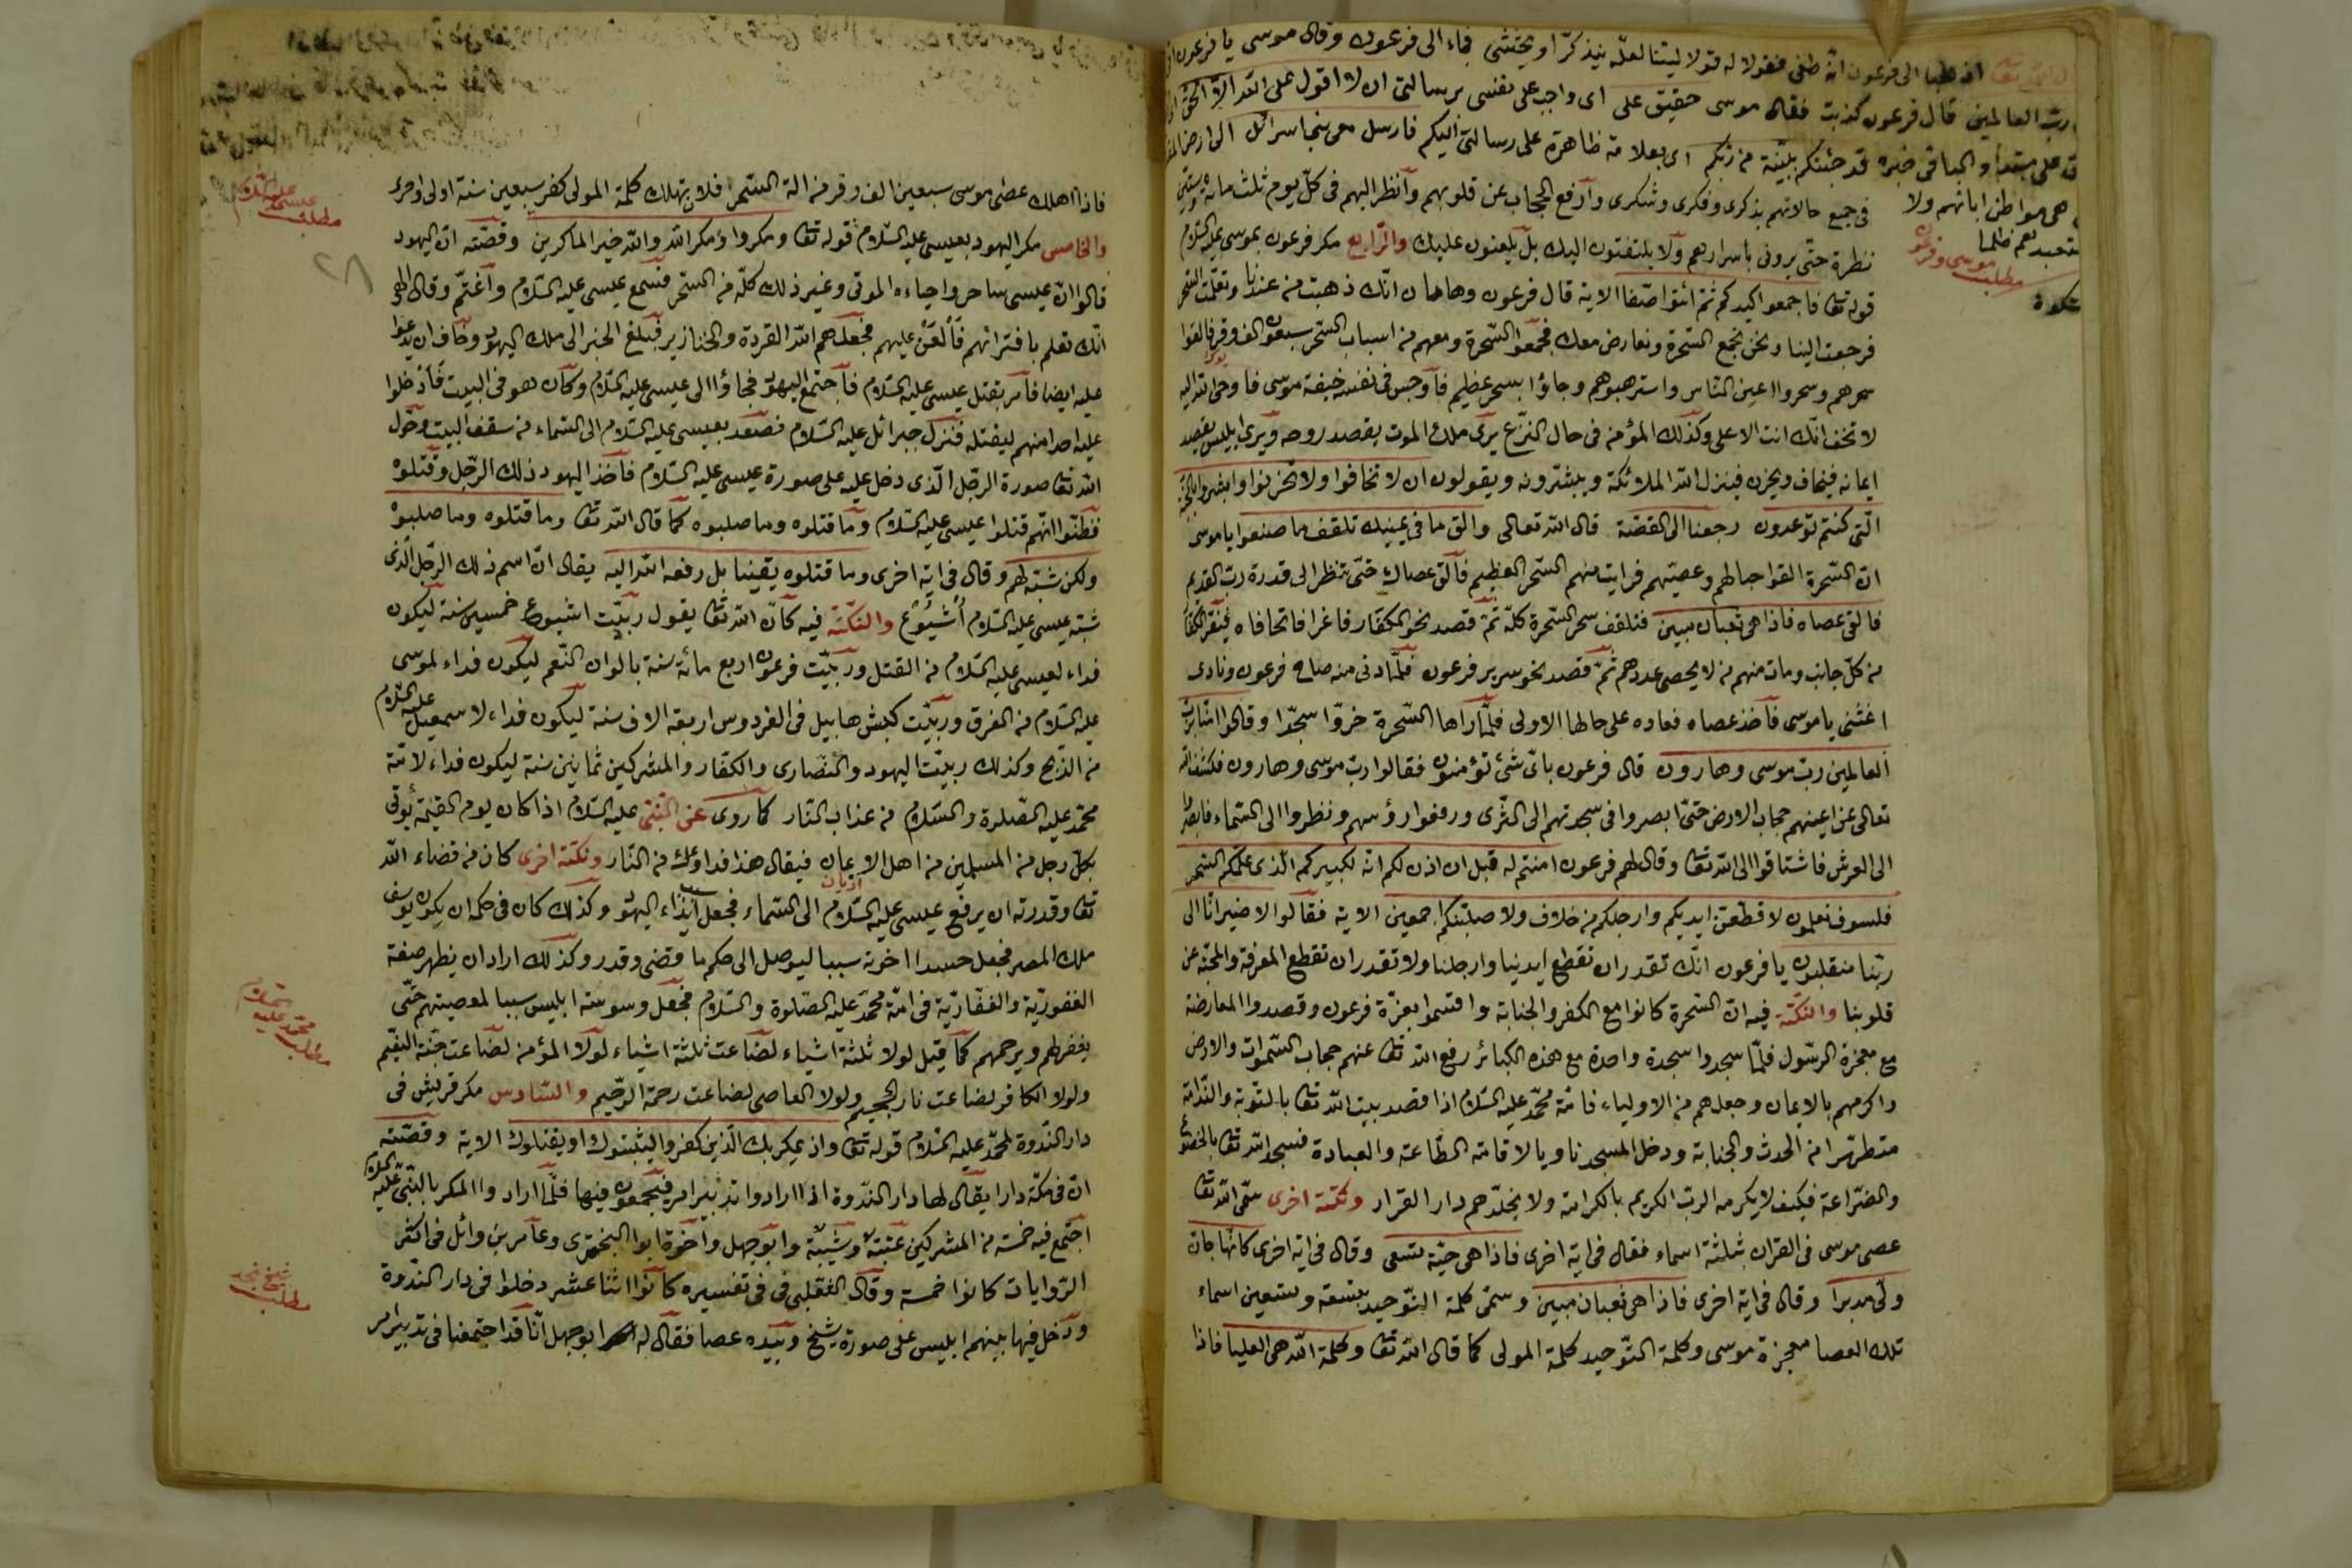 اذهبا الى فرعون انه طغى فقولا له قولا لينا لعله يتذكر او يخشى فجاء الى فرعون وقال موسى يا فرعون
رب العالمين قال فرعون كذبت فقال موسى حقيق على اى واجب على نفسى برسالتى ان لا اقول على الله الا الحق
على مبتدأ والباقى خبره قد جئتكم ببينة من ربكم اى بعلامة ظاهرة على رسالتى اليكم فارسل معى بنى اسرائل الى ارض
هى مواطن ابائهم ولا
مطلب موسى وفرعون
فى جميع حالاتهم بذكرى وفكرى وشكرى وارفع الحجاب عن قلوبهم وانظر اليهم فى كل يوم ثلث مائة وستين
نظرة حتى يرونى باسرارهم ولا يلتفتون اليك بل يلعنون عليك والرابع مكر فرعون بموسى عليه السلام
قوله تعا فاجمعوا كيدكم ثم ائتوا صفا الاية قال فرعون وهامان انك ذهبت من عندنا وتعلمت السحر
فرجعت الينا ونحن نجمع السحرة ونعارض معك فجمعوا السحرة ومعهم من اسباب السحر سبعون الف وقر فالقوا
سحرهم وسحروا اعين الناس واسترهبوهم وجاؤا بسحر عظيم فاوجس فى نفسه خيفة موسى فاوحى الله اليه
لا تخف انك انت الاعلى وكذلك المؤمن فى حال النزع يرى ملك الموت يقصد روحه ويرى ابليس يقصد
ايمانه فيخاف ويحزن فينزل الله الملائكة ويبشرونه ويقولون ان لا تخافوا ولا تحزنوا وابشروا بالجنة
التى كنتم توعدون رجعنا الى القصة قال الله تعالى والق ما فى يمينك تلقف ما صنعوا يا موسى
ان السحرة القوا حبالهم وعصيهم فرايت منهم السحر العظيم فالق عصاك حتى تنظر الى قدرة رب القديم
فالقى عصاه فاذا هى ثعبان مبين فتلقف سحر السحرة كله ثم قصد نحو الكفار فاغرا فاتحا فاه
من كل جانب ومات منهم من لا يحصى عددهم ثم قصد نحو سرير فرعون فلما دنى منه صاح فرعون ونادى
اغثنى يا موسى فاخذ عصاه فعاده على حالها الاولى فلما راها السحرة خروا سجدا وقالوا امنا برب
العالمين رب موسى وهارون قال فرعون باى شئ تؤمنون فقالوا رب موسى وهارون فكشف الله
تعالى عن اعينهم حجاب الارض حتى ابصروا فى سجدتهم الى الثرى ورفعوا رؤسهم ونظروا الى السماء فابصروا
الى العرش فاشتاقوا الى الله تعا وقال لهم فرعون امنتم له قبل ان اذن لكم انه لكبيركم الذى علمكم السحر
فلسوف تعلمون لاقطعن ايديكم وارجلكم من خلاف ولاصلبنكم اجمعين الاية فقالوا لا ضير انا الى
ربنا منقلبون يا فرعون انك تقدر ان تقطع ايدينا وارجلنا ولا تقدر ان تقطع المعرفة والمحبة عن
قلوبنا والنكتة فيه ان السحرة كانوا مع الكفر والجنابة واقسموا بعزة فرعون وقصدوا المعارضة
مع معجزة الرسول فلما سجدوا سجدة واحدة مع هذه الكبائر رفع الله تعا عنهم حجاب السموات والارض
واكرمهم بالايمان وجعلهم من الاولياء فامة محمد عليه السلام اذا قصد بيت الله تعا بالتوبة والندامة
متطهرا من الحدث والجنابة ودخل المسجد ناويا لاقامة الطاعة والعبادة فسجد الله تعا بالخضوع
والضراعة فكيف لا يكرمه الرب الكريم بالكرامة ولا يخلدهم دار القرار ونكتة اخرى سمى الله تعا
عصى موسى فى القران بثلثة اسماء فقال فى اية اخرى فاذا هى حية تسعى وقال فى اية اخرى كانها جان
ولى مدبرا وقال فى اية اخرى فاذا هى ثعبان مبين وسمى كلمة التوحيد بتسعة وتسعين اسماء
تلك العصا معجزة موسى وكلمة التوحيد كلمة المولى كما قال الله تعا وكلمة الله هى العليا فاذا
فاذا اهلك عصى موسى سبعين الف وقر من الة السحر افلا تهلك كلمة المولى كفر سبعين سنة اولى واحرى
مطلب عيسى عليه السلام
والخامس مكر اليهود بعيسى عليه السلام قوله تعا ومكروا ومكر الله والله خير الماكرين وقصته ان اليهود
٢٨
قالوا ان عيسى ساحر واحياءه الموتى وغير ذلك كله من السحر فسمع عيسى عليه السلام واغتم وقال الهى
انك تعلم بافترائهم فالعن عليهم فجعلهم الله القردة والخنازير فبلغ الخبر الى ملك اليهود وخاف ان يدعوا
عليه ايضا فامر بقتل عيسى عليه السلام فاجتمع اليهود فجاؤا الى عيسى عليه السلام وكان هو فى البيت فادخلوا
عليه احدا منهم ليقتله فنزل جبرائل عليه السلام فصعد بعيسى عليه السلام الى السماء من سقف البيت وحول
الله تعا صورة الرجل الذى دخل عليه على صورة عيسى عليه السلام فاخذ اليهود ذلك الرجل وقتلوه
فظنوا انهم قتلوا عيسى عليه السلام وما قتلوه وما صلبوه كما قال الله تعا وما قتلوه وما صلبوه
ولكن شبه لهم وقال فى اية اخرى وما قتلوه يقينا بل رفعه الله اليه يقال ان اسم ذلك الرجل الذى
شبه عيسى عليه السلام أشيوع والنكتة فيه كان الله تعا يقول ربيت اشيوع خمسين سنة ليكون
فداء لعيسى عليه السلام من القتل وربيت فرعون اربع مائة سنة بالوان النعم ليكون فداء لموسى
عليه السلام من الغرق وربيت كبش هابيل فى الفردوس اربعة الاف سنة ليكون فداء لاسمعيل عليه السلام
من الذبح وكذلك ربيت اليهود والنصارى والكفار والمشركين ثمانين سنة ليكون فداء لامة
محمد عليه الصلوة والسلام من عذاب النار كما روى عن النبى عليه السلام اذا كان يوم القيمة يؤتى
بكل رجل من المسلمين من اهل الاديان فيقال هذا فداؤك من النار ونكتة اخرى كان من قضاء الله
تعا وقدرته ان يرفع عيسى عليه السلام الى السماء فجعل ايذاء اليهود وكذلك كان فى حكمه ان يكون يوسف
ملك المصر فجعل حسد اخوته سببا ليوصل الى حكم ما قضى وقدر وكذلك اراد ان يظهر صفة
مطلب محمد عليه السلام
الغفورية والغفارية فى امة محمد عليه الصلوة والسلام فجعل وسوسة ابليس سببا لمعصيتهم حتى
يغفر لهم ويرحمهم كما قيل لولا ثلثة اشياء لضاعت ثلثة اشياء لولا المؤمن لضاعت جنة النعيم
ولولا الكافر لضاعت نار الجحيم ولولا العاصى لضاعت رحمة الرحيم والسادس مكر قريش فى
دار الندوة لمحمد عليه السلام قوله تعا واذ يمكر بك الذين كفروا ليثبتوك او يقتلوك الاية وقصته
ان فى مكة دارا يقال لها دار الندوة اذا ارادوا تدبير امر فيجمعون فيها فلما ارادوا المكر بالنبى عليه السلام
اجتمع فيه خمسة من المشركين عتبة وشيبة وابو جهل واخوه ابوا البخترى وعامر بن وائل فى اكثر
مطلب شيخ نجد
الروايات كانوا خمسة وقال الثعلبى فى تفسيره كانوا اثنا عشر دخلوا فى دار الندوة
ودخل فيها بينهم ابليس على صورة شيخ وبيده عصا فقال له ابو جهل انا قد اجتمعنا فى تدبير امر